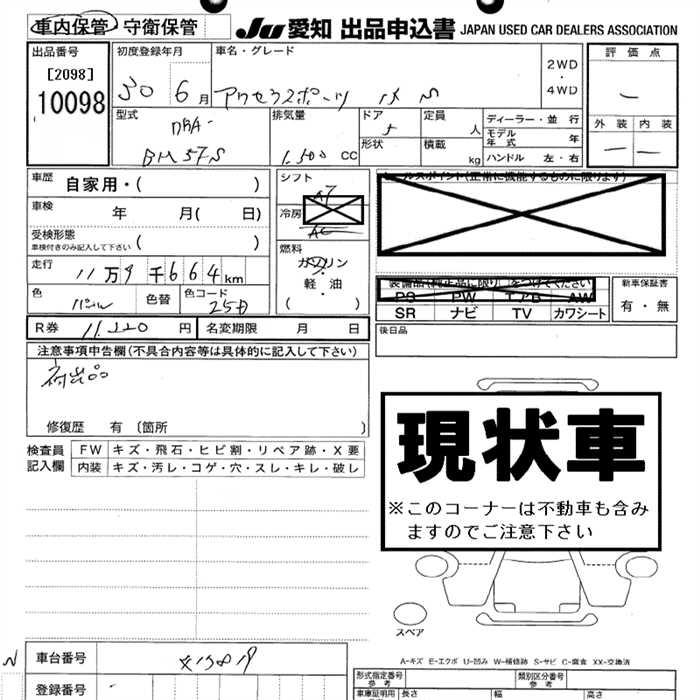 車内保管 守衛保管 JU 愛知 出品申込書 JAPAN USED CAR DEALERS ASSOCIATION
出品番号 初度登録年月 車名・グレード 評価点
[2098] 2WD
10098 30 6月 アクセラスポーツ 15 S ・
4WD
型式 排気量 ドア 定員 ディーラー・並行 外装 内装
DBA- 5 人 モデル年式 年
BM5FS 1,500 CC 形状 積載 kg ハンドル 左・右
車歴 自家用・( ) シフト セールスポイント(正常に機能するものに限ります)
AT
車検 年 月( 日) 冷房
AC
受検形態 ( )
車検付きのみ記入して下さい
燃料
走行 11万9千664km ガソリン
・
軽油 装備品(純正品に限り○をつけてください) 新車保証書
色 パール 色替 色コード 25D ( ) PS PW エアB AW 有・無
SR ナビ TV カワシート
R券 11,220円 名変期限 月 日 後日品
注意事項申告欄(不具合内容等は具体的に記入して下さい)
初出品
修復歴 有 〔箇所 〕
検査員 FW キズ・飛石・ヒビ割・リペア跡・X要
記入欄 内装 キズ・汚レ・コゲ・穴・スレ・キレ・破レ
現状車
※このコーナーは不動車も含み
ますのでご注意下さい
スペア
A-キズ E-エクボ U-凹み W-補修跡 S-サビ C-腐食 XX-交換済
N 車台番号
登録番号
形式指定番号 参考 類別区分番号 参考
車庫証明用 長さ 幅 高さ